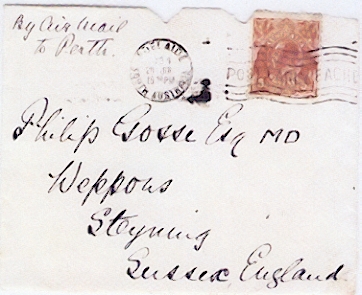 By Air Mail
to Perth.
ADELAIDE
STH AUSTRALIA
Philip Gosse Esq MD
Weppons
Steyning
Sussex, England.